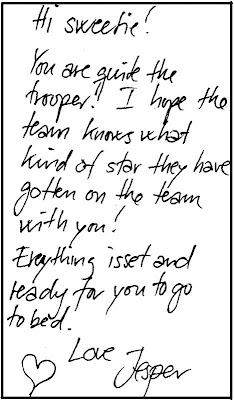 Hi sweetie!
You are guide the
trooper! I hope the
team knows what
kind of star they have
gotten on the team
with you!
Ereything is set and
ready for you to go
to bed.
Love Jesper